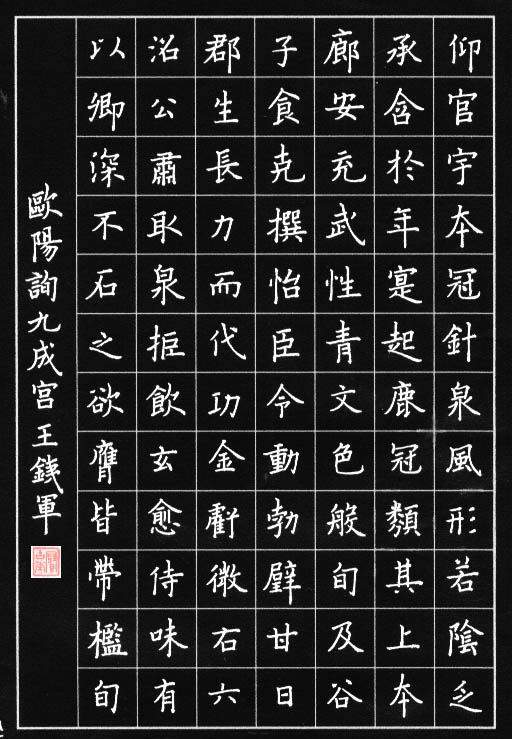 仰官宇本冠針泉風形若陰乏
承含於年寔起鹿冠類其上本
廊安充武性青文色般旬及谷
子食克撰怡臣令動勃壁甘日
郡生長力而代功金虧微右六
沼公肅取泉拒飲玄愈侍味有
以卿深不石之欲膺皆帶檻旬
歐陽詢九成宫王鉄軍